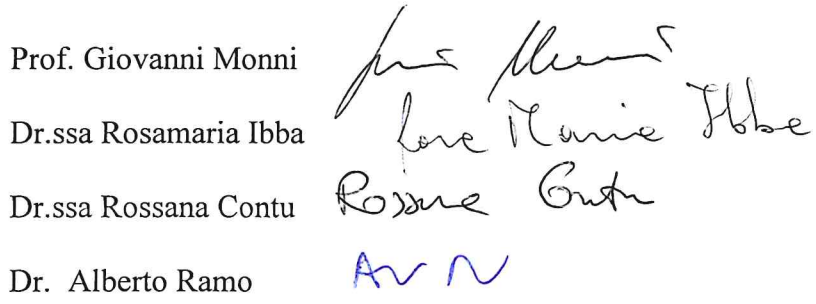 Prof. Giovanni Monni
Dr.ssa Rosamaria Ibba Rosa Maria Ibba
Dr.ssa Rossana Contu Rossana Contu
Dr. Alberto Ramo